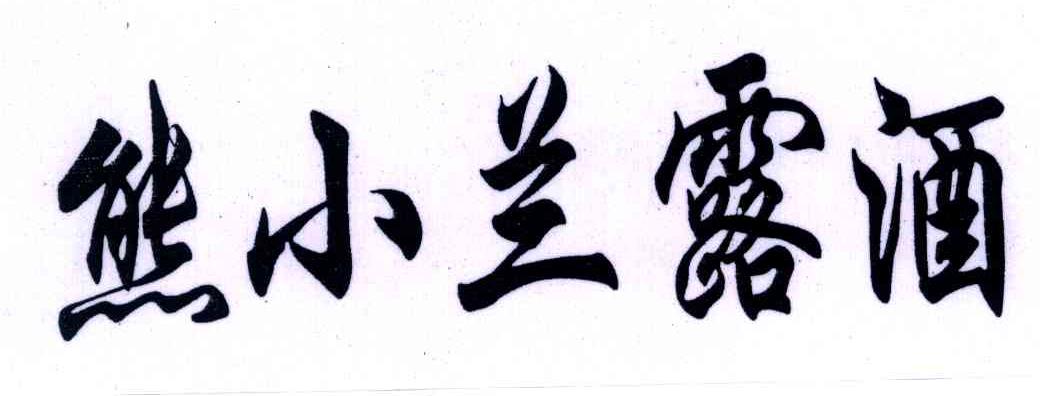 熊小兰露酒